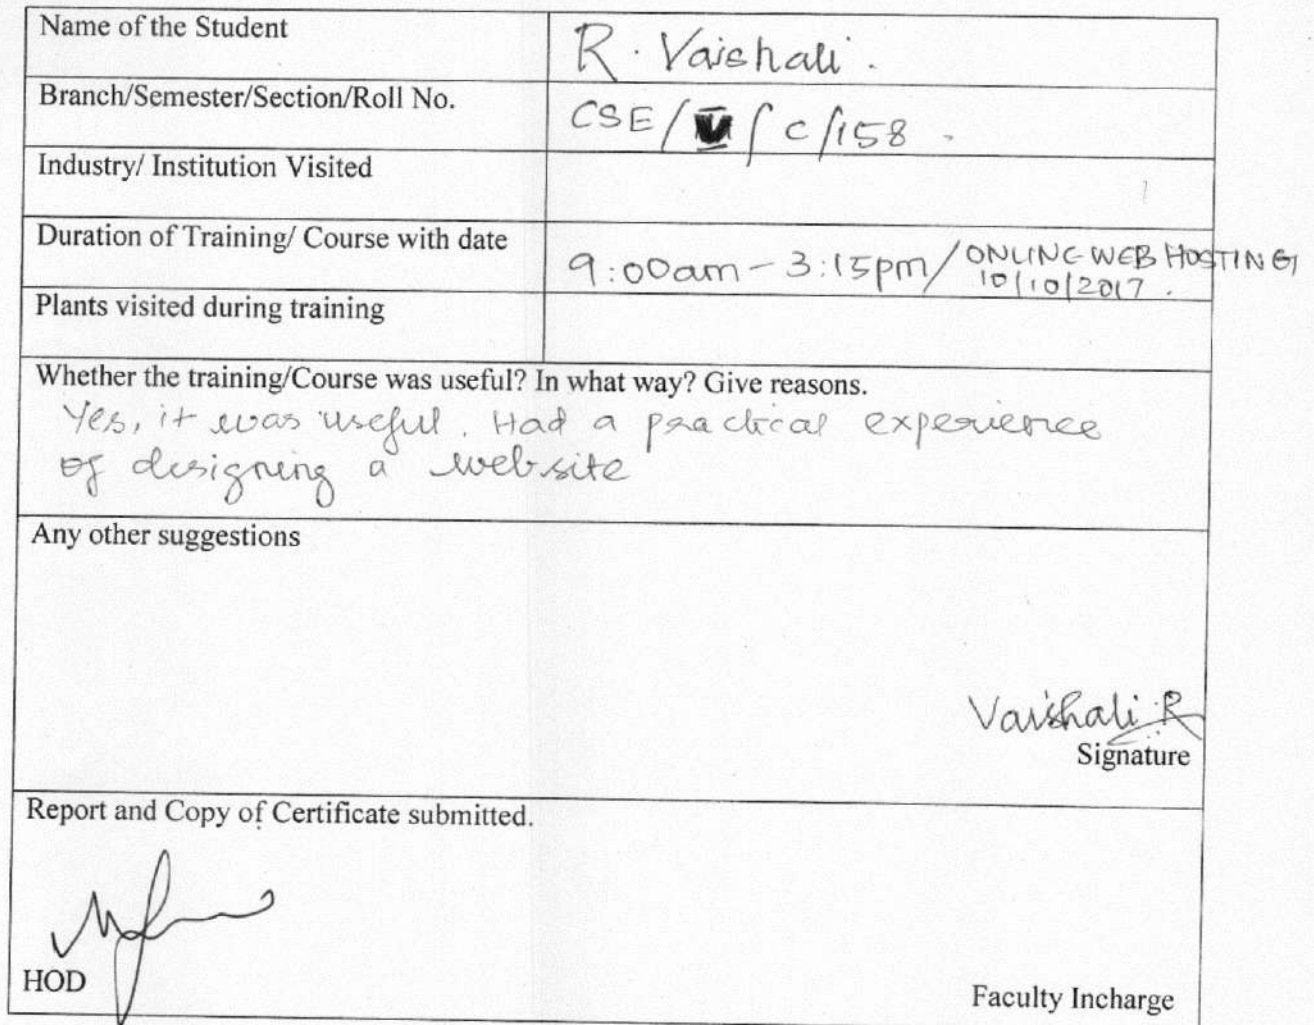 Name of the Student
R. Vaishali.
Branch/Semester/Section/Roll No.
CSE/V/C/158.
Industry/ Institution Visited
Duration of Training/ Course with date
9:00am - 3:15pm/ ONLINE WEB HOSTING
10/10/2017.
Plants visited during training
Whether the training/Course was useful? In what way? Give reasons.
Yes, it was useful. Had a practical experience
of designing a website
Any other suggestions
Vaishali R
Signature
Report and Copy of Certificate submitted.
HOD
Faculty Incharge